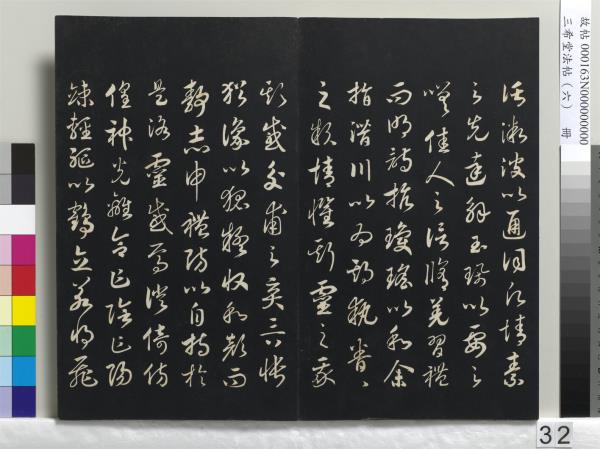 故帖 000163N000000000
三希堂法帖(六) 冊
託微波以通詞願情素
之先達解玉珮以要之
嗟佳人之信脩羌習禮
而明詩抗瓊瑤以和余
指潛川以為期執眷々
之款情懼斯靈之我
欺感交甫之棄言悵
猶豫以狐疑收和顏而
靜志申禮防以自持於
是洛靈感焉徙倚彷
徨神光離合乍陰乍陽
竦輕軀以鶴立若將飛
32